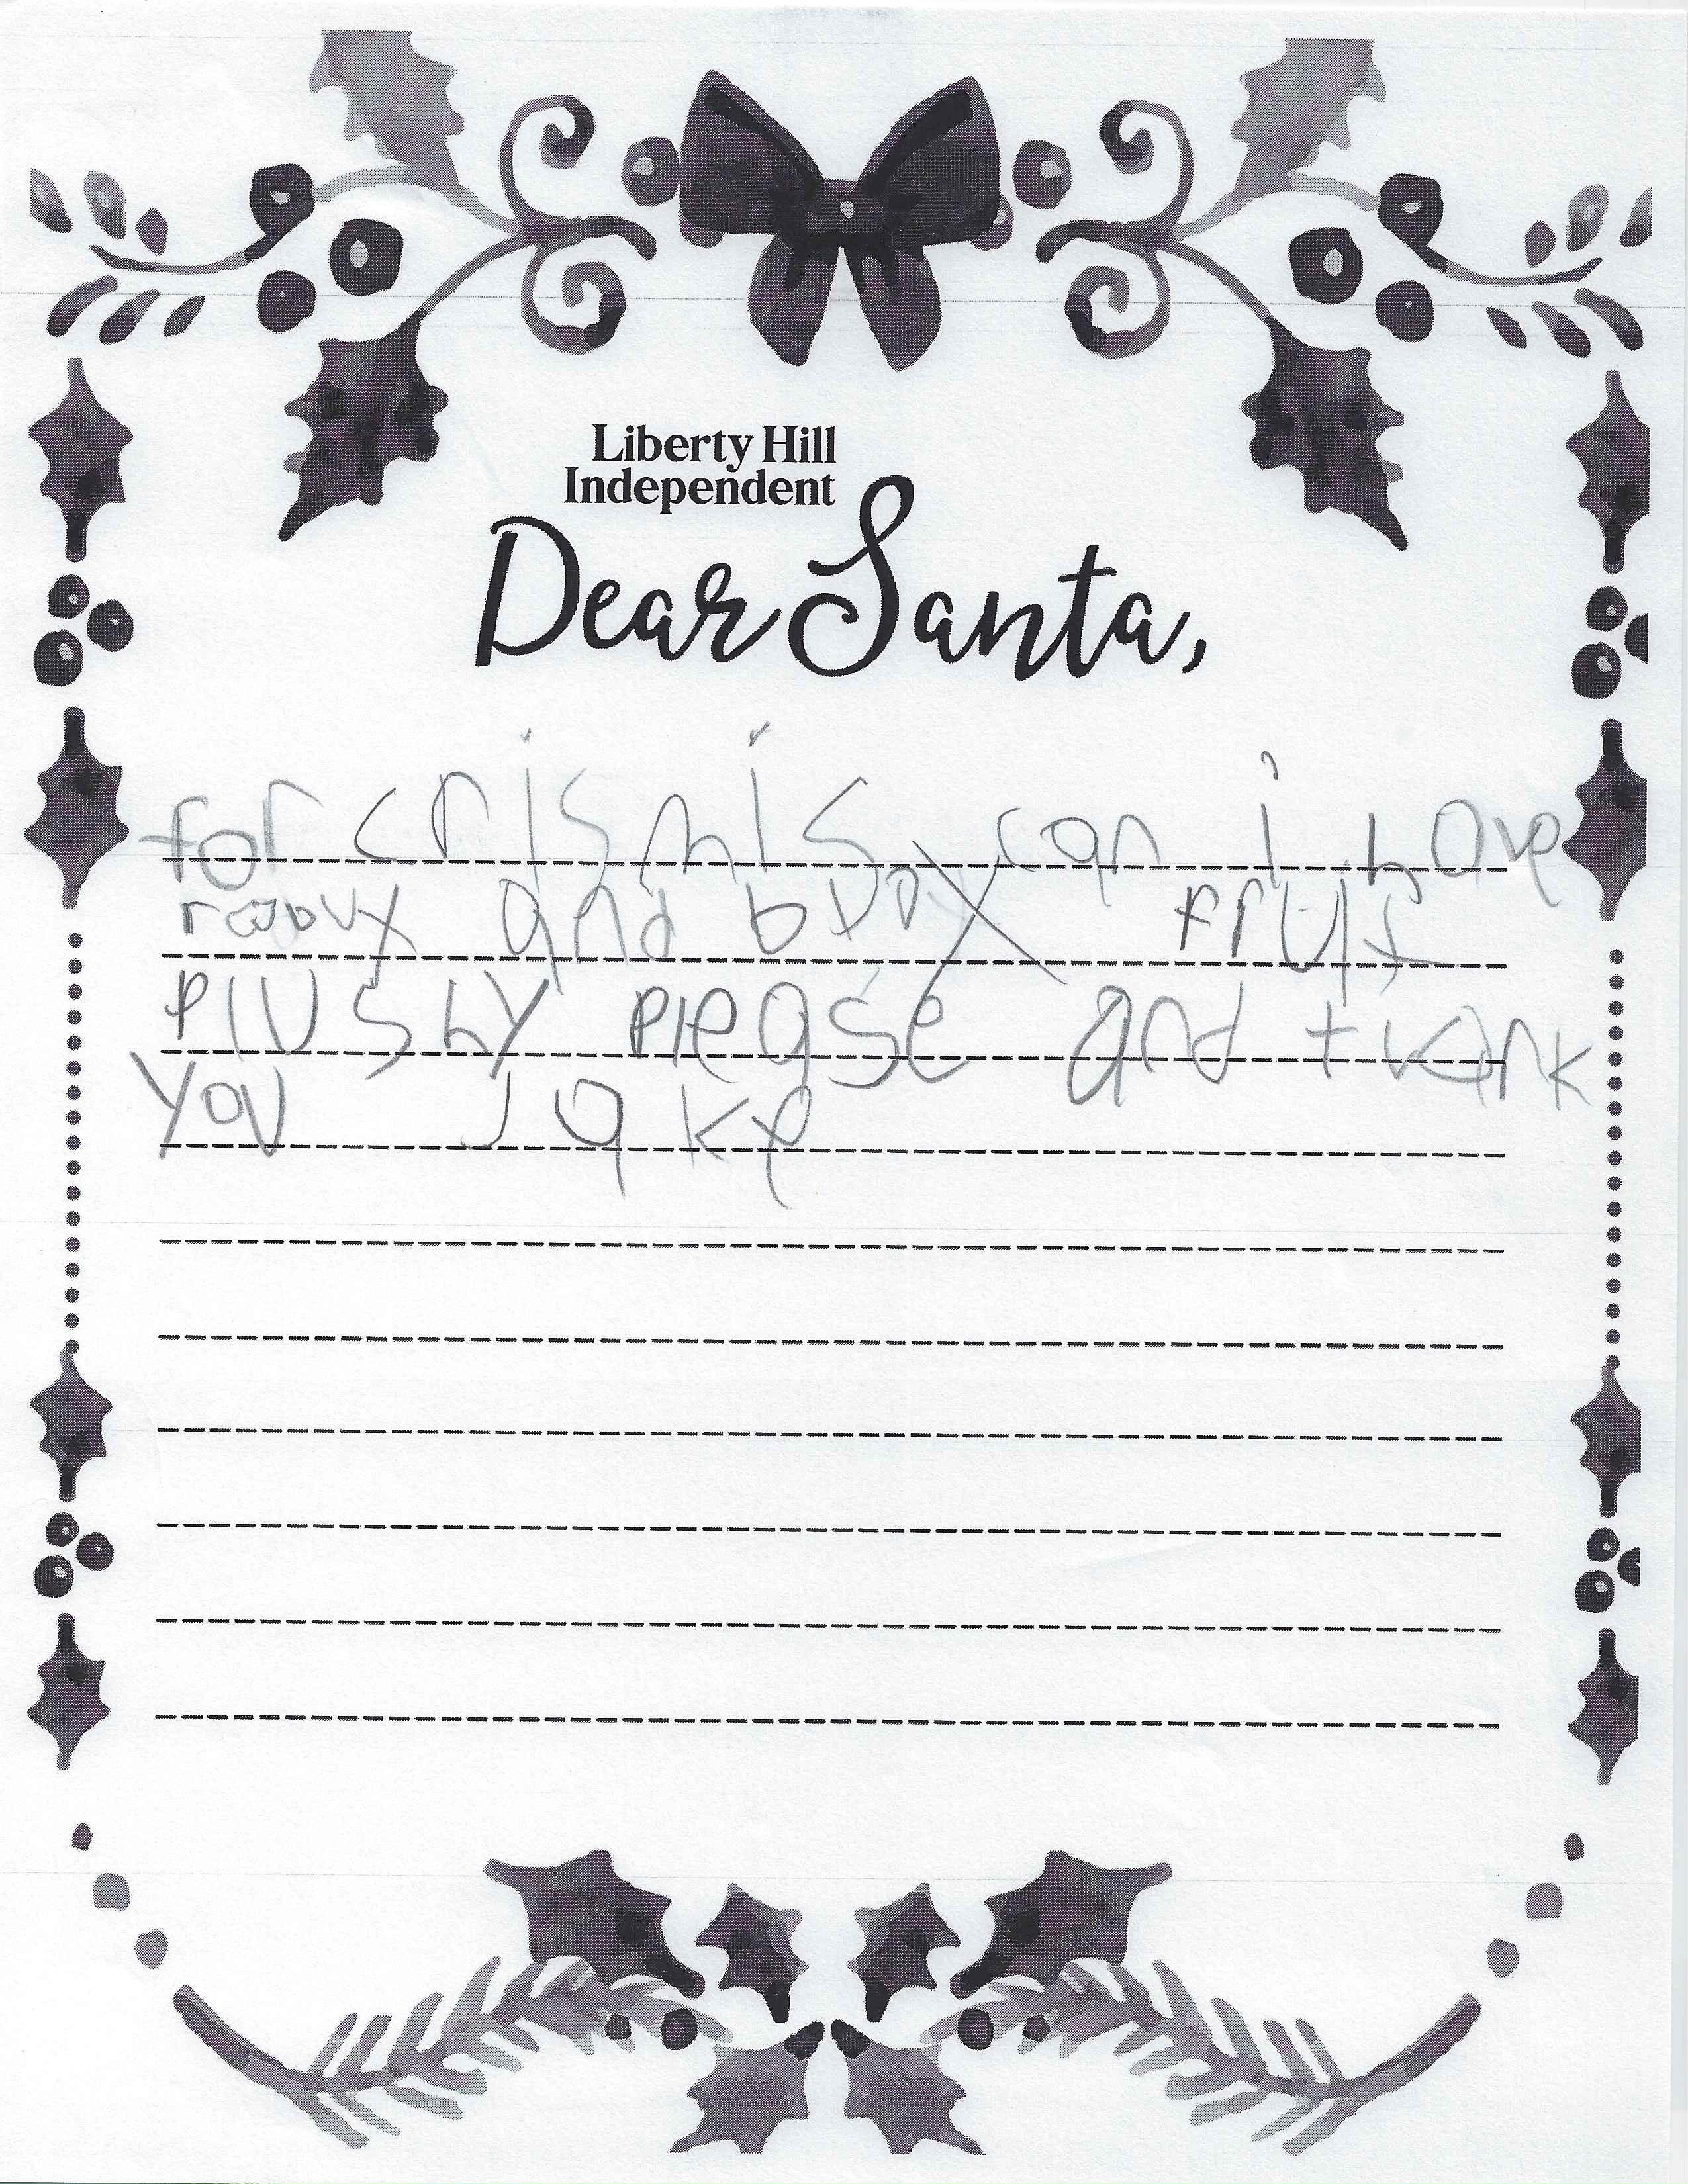 Liberty Hill
Independent
Dear Santa,
for crismis can i have
and frut
plushy please and thank
you Jake